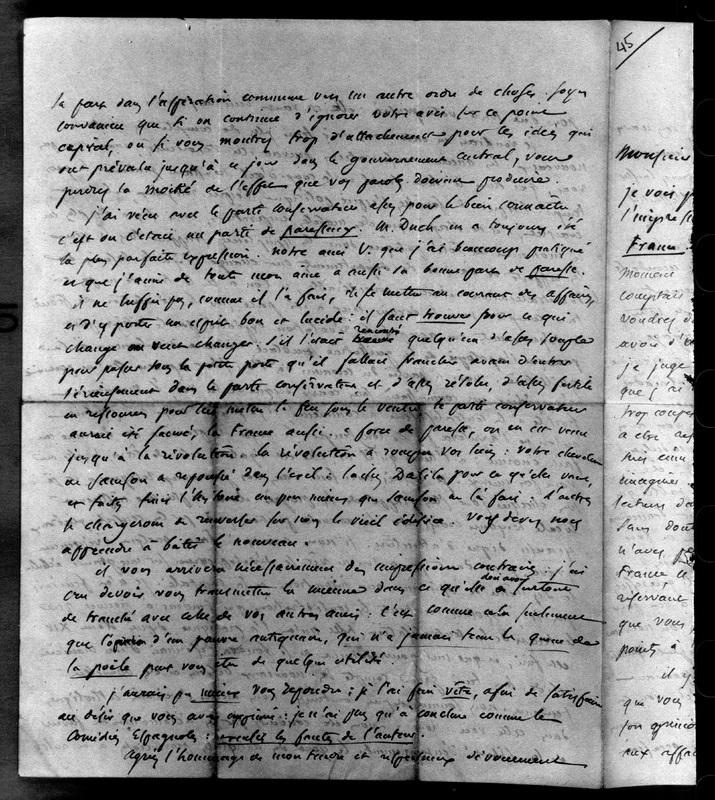 la part dans l'aspiration commune vers un autre ordre de choses. Soyez
convaincu que si on continue d'ignorer votre avis sur ce point
capital, ou si vous montrez trop d'attachement pour les idées qui
ont prévalu jusqu'à ce jour dans le gouvernement central, vous
perdrez la moitié de l'effet que vos paroles doivent produire.
j'ai vécu avec le parti conservateur assez pour le bien connaître
c'est ou c'était un parti de paresseux. M. Duch. en a toujours été
la plus parfaite expression. notre ami V. que j'ai beaucoup pratiqué
et que j'aime de toute mon âme a aussi sa bonne part de paresse.
il ne suffit pas, comme il l'a fait, de se mettre au courant des affaires
et d'y porter un esprit bon et lucide: il faut trouver pour ce qui
change ou veut changer. S'il s'était rencontré quelqu'un d'assez souple
pour passer sous la petite porte qu'il fallait franchir avant d'entrer
sérieusement dans le parti conservateur et d'assez résolu, d'assez fertile
en ressources pour lui mettre le feu sous le ventre, le parti conservateur
aurait été sauvé, la France aussi. à force de paresse, on en est venu
jusqu'à la révolution. la révolution a rongé vos liens: votre chevelure
de Samson a repoussé dans l'exil: laissez Dalila pour ce qu'elle vaut,
et faites finir l'histoire un peu mieux que Samson ne l'a fait. d'autres
se chargeront de renverser sur nous le vieil édifice. Vous devez nous
apprendre à bâtir le nouveau.
il vous arrivera nécessairement des impressions contraires. j'ai
cru devoir vous transmettre la mienne dans ce qu'elle doit avoir surtout
de tranché avec celle de vos autres amis: c'est comme cela seulement
que l'opinion d'un pauvre antiquaire, qui n'a jamais tenu la queue de
la poële peut vous être de quelque utilité.
j'aurais pu mieux vous répondre; je l'ai fait vite, afin de satisfaire
au désir que vous avez exprimé: je n'ai plus qu'à conclure comme les
comédies Espagnoles: excusez les fautes de l'auteur.
Agréez l'hommage de mon tendre et respectueux dévouement
45
Monsieur
je vois
l'impress
France.
moment
comptais
voudrez
avois d'
je juge
que j'ai
trop
a être
imaginer
Sans dout
n'avez
France
réservant
que vous
points à
il y
que vous
son opinion
aux affai